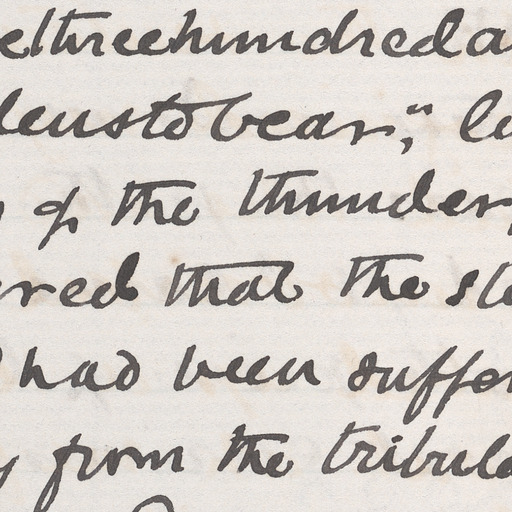 elthreehundreda
denstobear,"
of the thunder,
ered that the
had been suffer
from the tribula